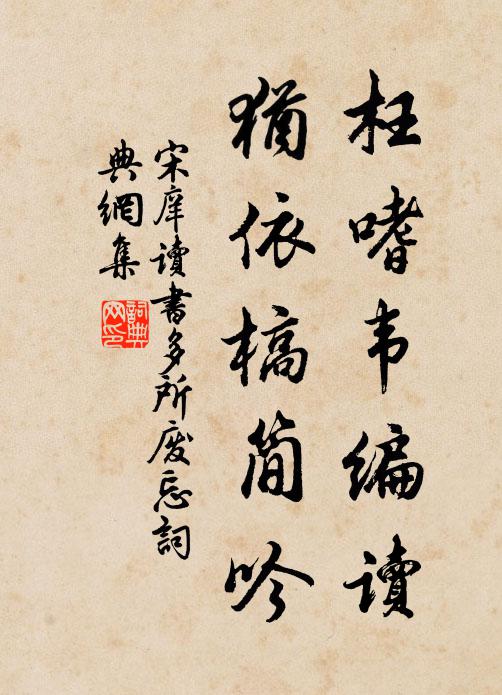 枉嗜韦编读
犹依槁简吟
宋庠读书多所废忘词
典網集
詞典网印